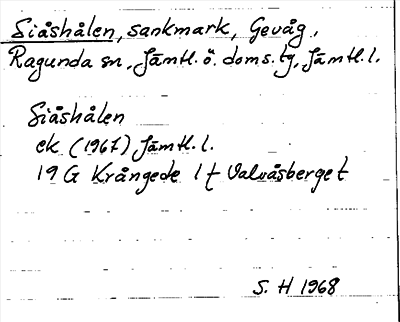 Siåshålen, sankmark, Gevåg,
Ragunda sn, Jämtl. ö. doms. tg, Jämtl. l.
Siåshålen
ek (1967) Jämtl. l.
19 G Krångede 1 f Valvåsberget
S. H 1968